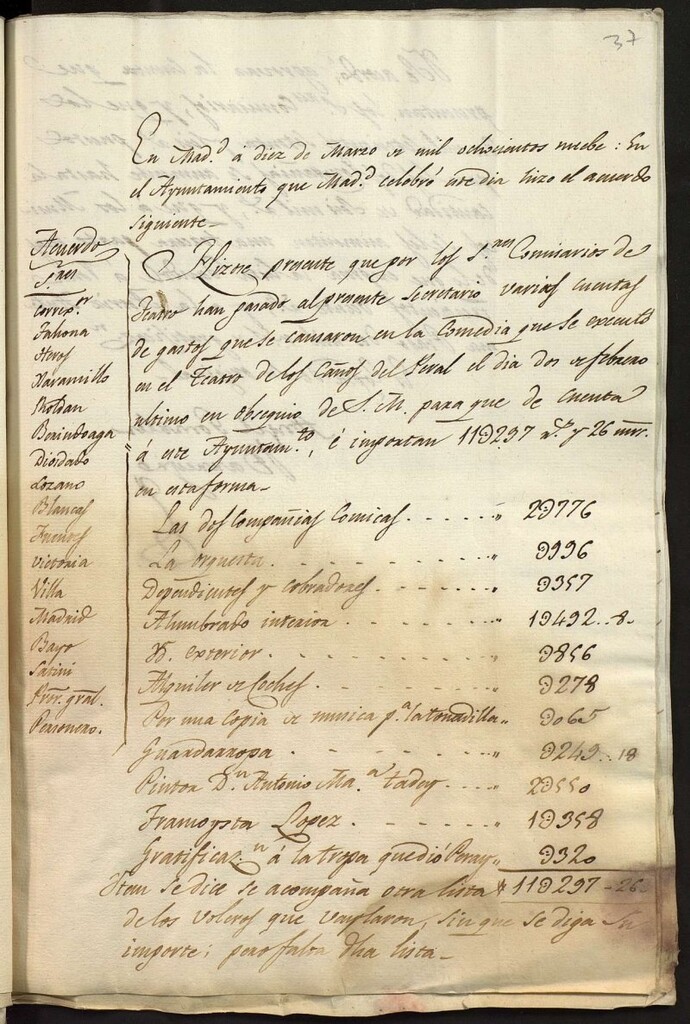 37
En Mad.d á diez de Marzo de mil ochocientos nuebe: En
el Ayuntamiento que Mad.d celebró este dia hizo el acuerdo
siguiente_
Acuerdo
S.res
Correx.or
Fahona
Heros
Naramillo
Roldan
Beaindoaga
Diosdado
Lozano
Blancas
Fuentes
Victoria
Villa
Madrid
Bayo
Satini
Pror. gral.
Personero.
Hizose presente que por los S.res Comisarios de
Teatro han pasado al presente Secretario varias cuentas
de gastos que se causaron en la Comedia que se executó
en el Teatro de los Caños del Peral el dia dos de febrero
ultimo en obsequio de S. M. para que de cuenta
á este Ayuntam.to, é importan 11Ɔ297 r.s y 26 mrs.
en esta forma_
Las dos Compañias Comicas . . . . . " 2Ɔ776
La orquesta . . . . . . . . " Ɔ996
Dependientes y cobradores . . . . . " Ɔ357
Alumbrado interior . . . . . . " 1Ɔ492..8.
Yd. exterior . . . . . . . . " Ɔ856
Alquiler de Coches . . . . . . " Ɔ278
Por una Copia de musica p.a la tonadilla " Ɔ065
Guardarropa . . . . . . . " Ɔ249..18
Pintor D.n Antonio Ma.a Tadey . . . . " 2Ɔ550
Tramoysta Lopez . . . . . . " 1Ɔ358
Gratificaz.n á la tropa que dió " Ɔ320
Yten se dice se acompaña otra lista " 11Ɔ297-26
de los Voleros que vaylaron, sin que se diga su
importe; pero falta dha lista_